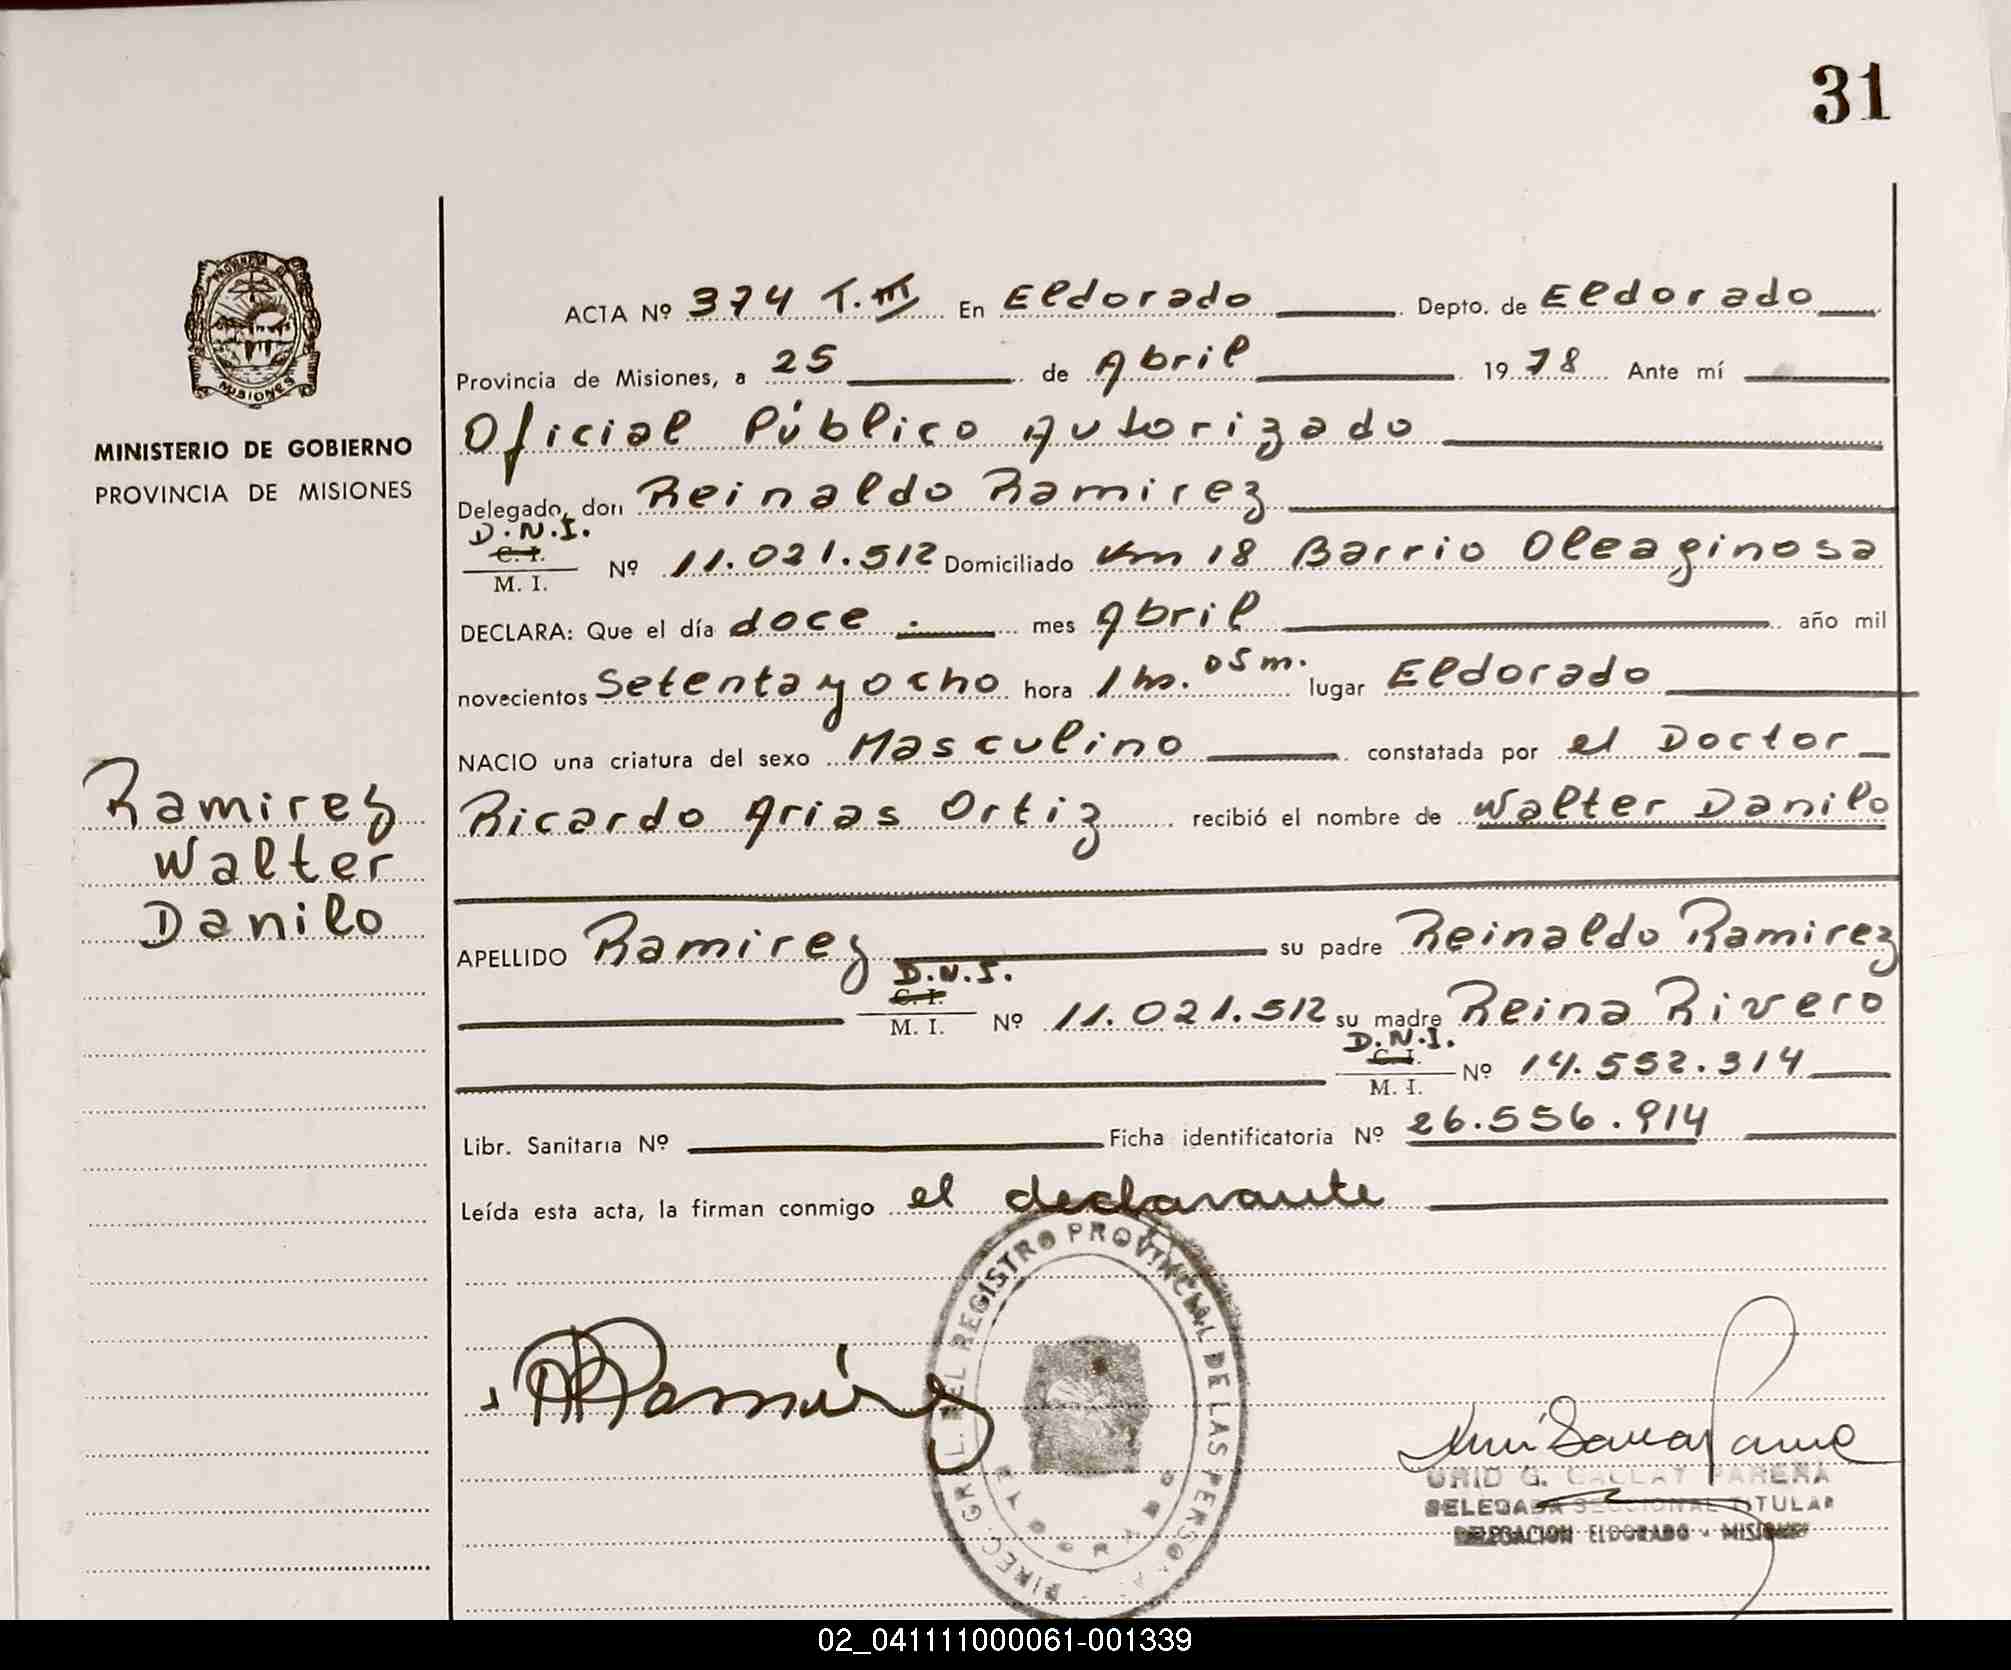 31
ACTA Nº 374 T. III En Eldorado Depto. de Eldorado
Provincia de Misiones, a 25 de Abril 1978 Ante mí
Oficial Público Autorizado
Delegado, don Reinaldo Ramirez
D.N.I.
C. I.
M. I. Nº 11.021.512 Domiciliado Km 18 Barrio Oleaginosa
DECLARA: Que el día doce mes Abril año mil
novecientos Setenta y ocho hora 1 hs. 05 m. lugar Eldorado
NACIO una criatura del sexo Masculino constatada por el Doctor
Ricardo Arias Ortiz recibió el nombre de Walter Danilo
APELLIDO Ramirez su padre Reinaldo Ramirez
D.N.I.
C. I.
M. I. Nº 11.021.512 su madre Reina Rivero
D.N.I.
C. I.
M. I. Nº 14.552.314
Libr. Sanitaria Nº Ficha identificatoria Nº 26.556.914
Leída esta acta, la firman conmigo el declarante
MISIONES
MINISTERIO DE GOBIERNO
PROVINCIA DE MISIONES
Ramirez
Walter
Danilo
RRamírez
DIREC. GRAL. DEL REGISTRO PROVINCIAL DE LAS PERSONAS
ELDORADO
DELEGADA SECCIONAL TITULAR
DELEGACION ELDORADO - MISIONES
02_041111000061-001339